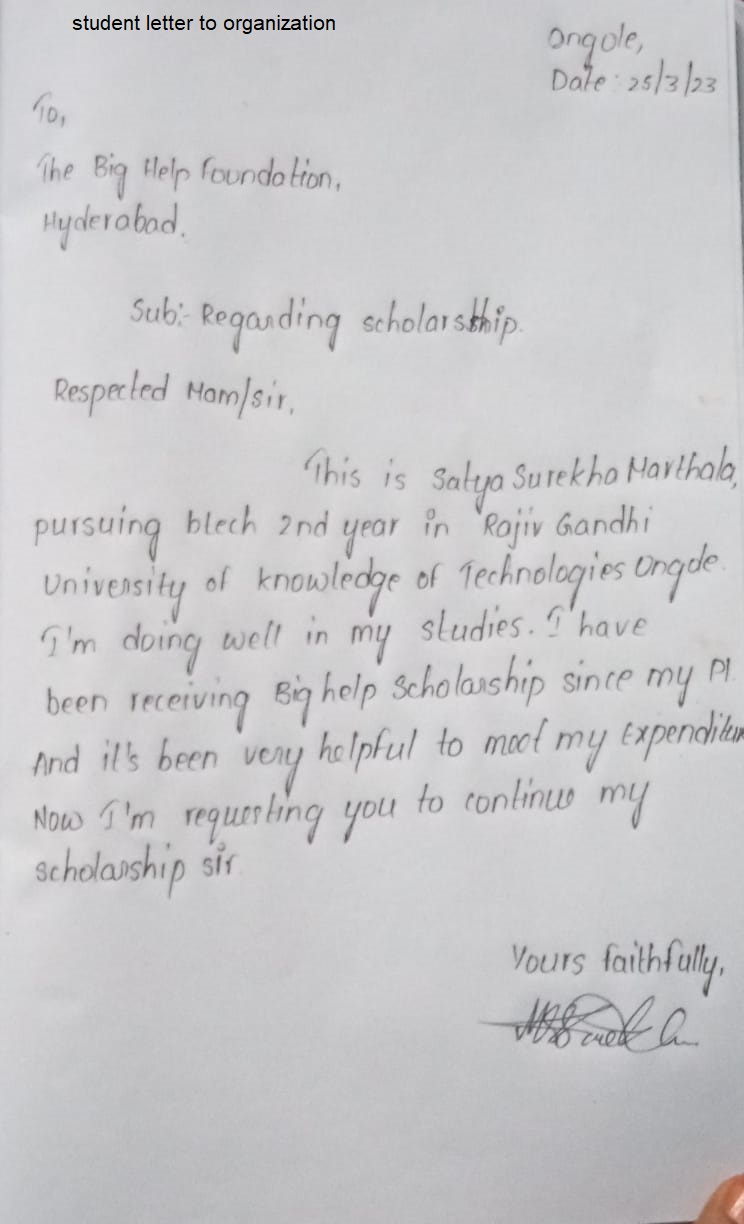 student letter to organization
Ongole,
Date: 25/3/23
To,
The Big Help Foundation,
Hyderabad.
Sub:- Regarding scholarship.
Respected Mam/sir,
This is Satya Surekha Marthala,
pursuing btech 2nd year in Rajiv Gandhi
University of knowledge of Technologies Ongole.
I'm doing well in my studies. I have
been receiving Big help Scholarship since my P1.
And it's been very helpful to meet my Expenditur
Now I'm requesting you to continue my
scholarship sir
Yours faithfully,